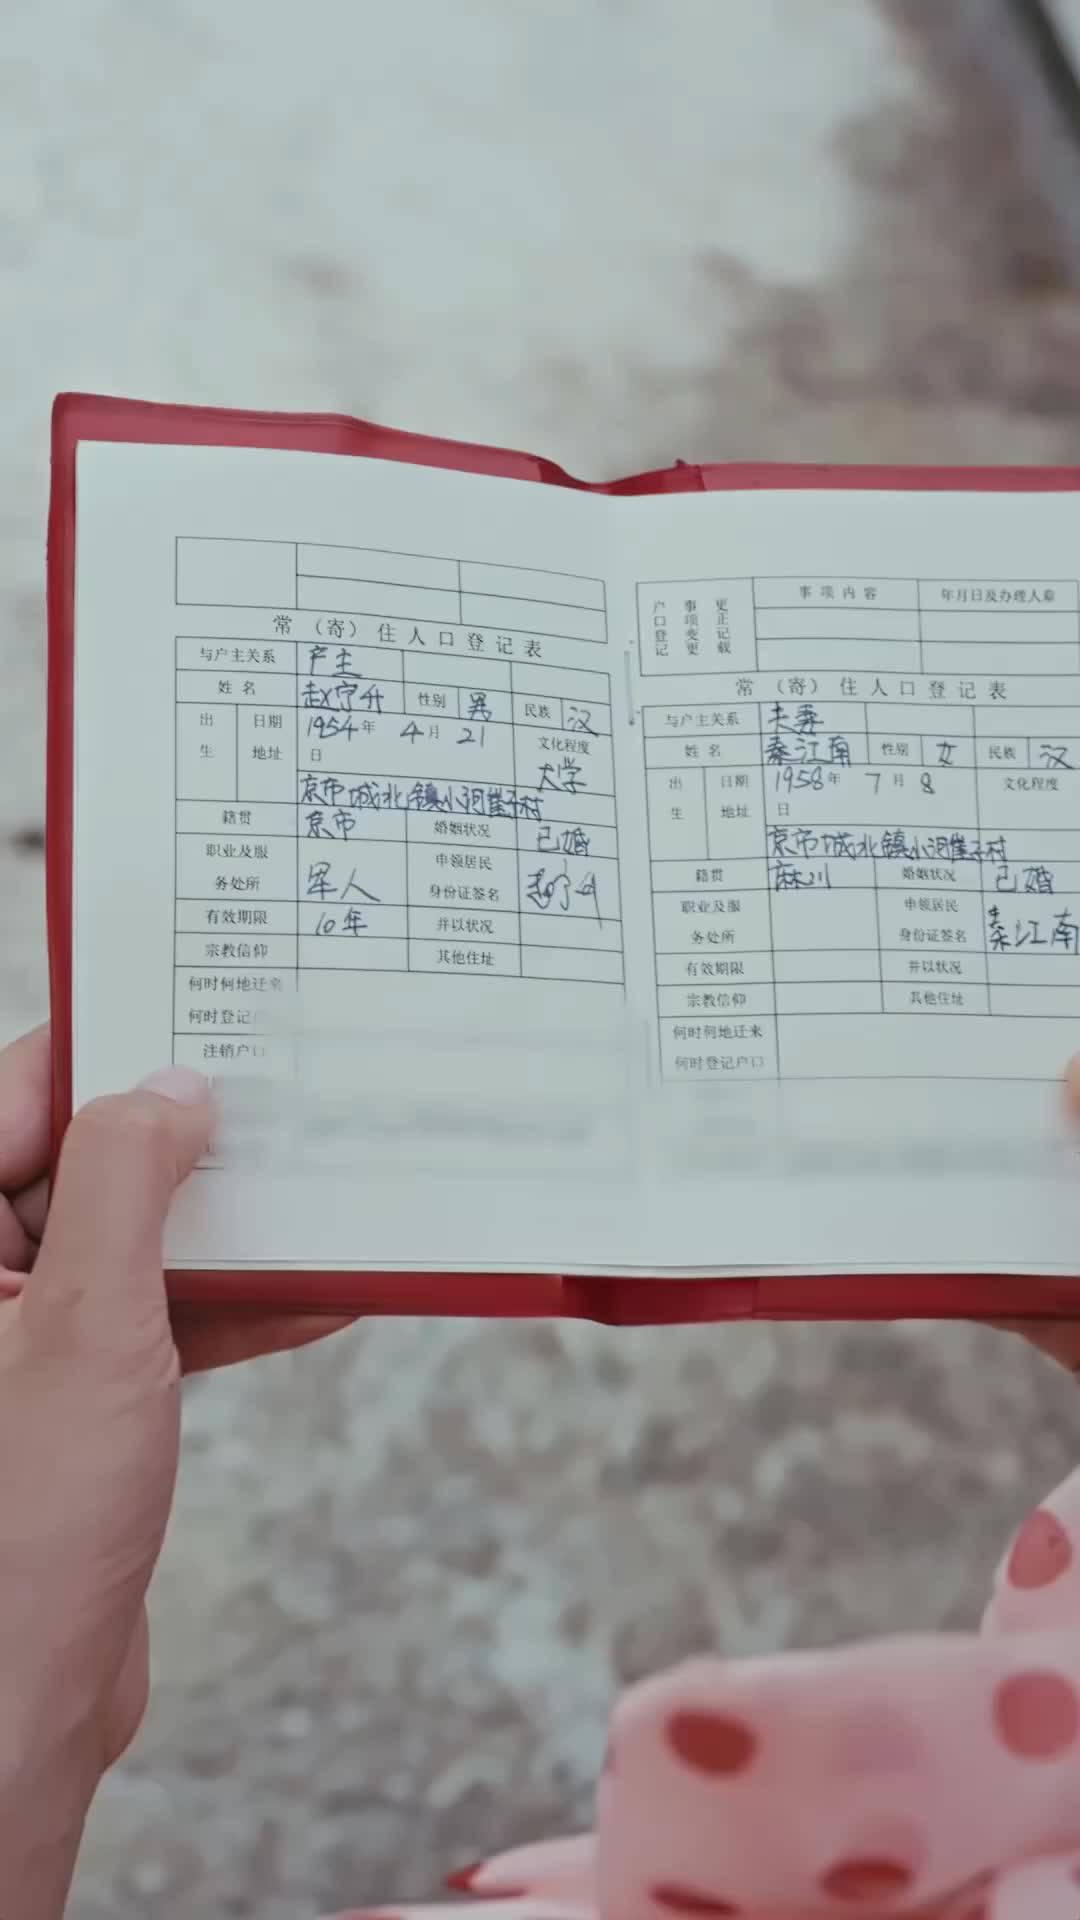 常（寄）住人口登记表
与户主关系 户主
姓名 赵宁升 性别 男 民族 汉
出生 日期 1954年 4月 21日 文化程度 大学
地址 京市城北镇小河崖子村
籍贯 京市 婚姻状况 已婚
职业及服务处所 军人 申领居民身份证签名
有效期限 10年 并以状况
宗教信仰 其他住址
何时何地迁来
何时登记
注销户口
户口登记事项变更更正记载 事项内容 年月日及办理人章
常（寄）住人口登记表
与户主关系 夫妻
姓名 秦江南 性别 女 民族 汉
出生 日期 1958年 7月 8日 文化程度
地址 京市城北镇小河崖子村
籍贯 麻川 婚姻状况 已婚
职业及服务处所 申领居民身份证签名 秦江南
有效期限 并以状况
宗教信仰 其他住址
何时何地迁来
何时登记户口